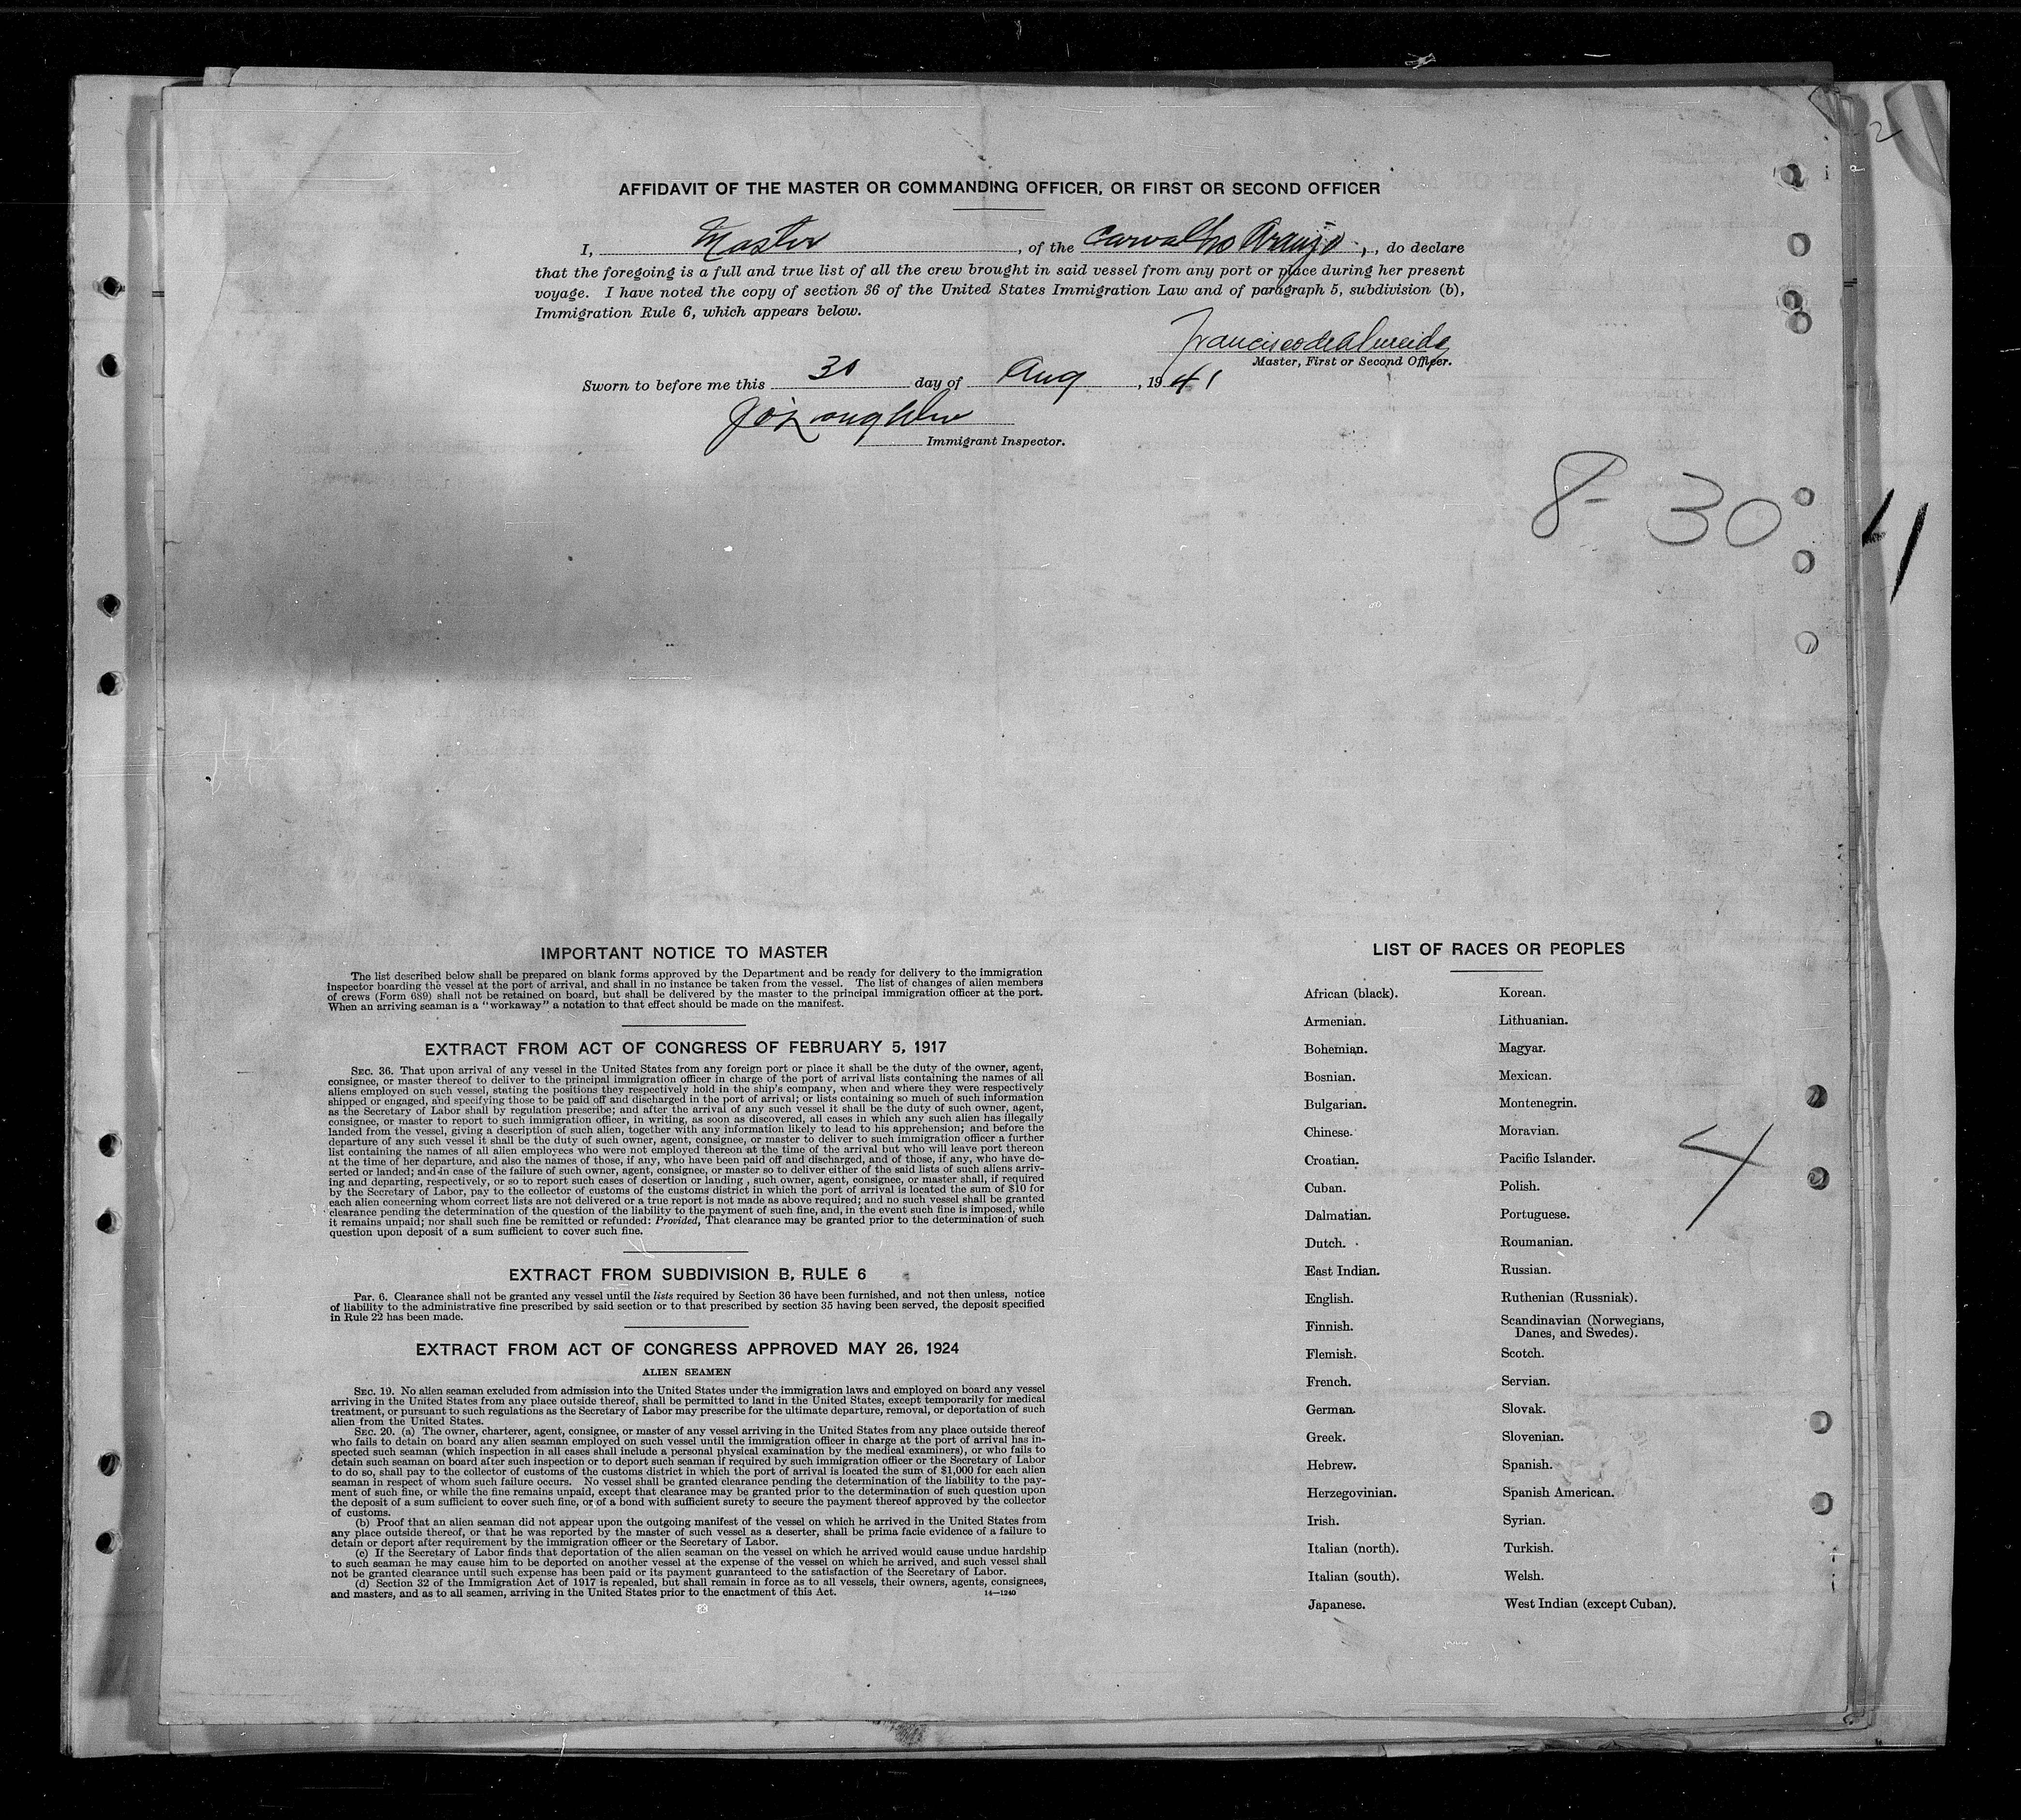 2
AFFIDAVIT OF THE MASTER OR COMMANDING OFFICER, OR FIRST OR SECOND OFFICER
I, Master, of the Carvalho Araujo, do declare
that the foregoing is a full and true list of all the crew brought in said vessel from any port or place during her present
voyage. I have noted the copy of section 36 of the United States Immigration Law and of paragraph 5, subdivision (b),
Immigration Rule 6, which appears below.
Francisco de Almeida
Master, First or Second Officer.
Sworn to before me this 30 day of Aug, 1941
Immigrant Inspector.
8-30
IMPORTANT NOTICE TO MASTER
The list described below shall be prepared on blank forms approved by the Department and be ready for delivery to the immigration
inspector boarding the vessel at the port of arrival, and shall in no instance be taken from the vessel. The list of changes of alien members
of crews (Form 689) shall not be retained on board, but shall be delivered by the master to the principal immigration officer at the port.
When an arriving seaman is a "workaway" a notation to that effect should be made on the manifest.
EXTRACT FROM ACT OF CONGRESS OF FEBRUARY 5, 1917
SEC. 36. That upon arrival of any vessel in the United States from any foreign port or place it shall be the duty of the owner, agent,
consignee, or master thereof to deliver to the principal immigration officer in charge of the port of arrival lists containing the names of all
aliens employed on such vessel, stating the positions they respectively hold in the ship's company, when and where they were respectively
shipped or engaged, and specifying those to be paid off and discharged in the port of arrival; or lists containing so much of such information
as the Secretary of Labor shall by regulation prescribe; and after the arrival of any such vessel it shall be the duty of such owner, agent,
consignee, or master to report to such immigration officer, in writing, as soon as discovered, all cases in which any such alien has illegally
landed from the vessel, giving a description of such alien, together with any information likely to lead to his apprehension; and before the
departure of any such vessel it shall be the duty of such owner, agent, consignee, or master to deliver to such immigration officer a further
list containing the names of all alien employees who were not employed thereon at the time of the arrival but who will leave port thereon
at the time of her departure, and also the names of those, if any, who have been paid off and discharged, and of those, if any, who have de-
serted or landed; and in case of the failure of such owner, agent, consignee, or master so to deliver either of the said lists of such aliens arriv-
ing and departing, respectively, or so to report such cases of desertion or landing, such owner, agent, consignee, or master shall, if required
by the Secretary of Labor, pay to the collector of customs of the customs district in which the port of arrival is located the sum of $10 for
each alien concerning whom correct lists are not delivered or a true report is not made as above required; and no such vessel shall be granted
clearance pending the determination of the question of the liability to the payment of such fine, and, in the event such fine is imposed, while
it remains unpaid; nor shall such fine be remitted or refunded: Provided, That clearance may be granted prior to the determination of such
question upon deposit of a sum sufficient to cover such fine.
EXTRACT FROM SUBDIVISION B, RULE 6
Par. 6. Clearance shall not be granted any vessel until the lists required by Section 36 have been furnished, and not then unless, notice
of liability to the administrative fine prescribed by said section or to that prescribed by section 35 having been served, the deposit specified
in Rule 22 has been made.
EXTRACT FROM ACT OF CONGRESS APPROVED MAY 26, 1924
ALIEN SEAMEN
SEC. 19. No alien seaman excluded from admission into the United States under the immigration laws and employed on board any vessel
arriving in the United States from any place outside thereof, shall be permitted to land in the United States, except temporarily for medical
treatment, or pursuant to such regulations as the Secretary of Labor may prescribe for the ultimate departure, removal, or deportation of such
alien from the United States.
SEC. 20. (a) The owner, charterer, agent, consignee, or master of any vessel arriving in the United States from any place outside thereof
who fails to detain on board any alien seaman employed on such vessel until the immigration officer in charge at the port of arrival has in-
spected such seaman (which inspection in all cases shall include a personal physical examination by the medical examiners), or who fails to
detain such seaman on board after such inspection or to deport such seaman if required by such immigration officer or the Secretary of Labor
to do so, shall pay to the collector of customs of the customs district in which the port of arrival is located the sum of $1,000 for each alien
seaman in respect of whom such failure occurs. No vessel shall be granted clearance pending the determination of the liability to the pay-
ment of such fine, or while the fine remains unpaid, except that clearance may be granted prior to the determination of such question upon
the deposit of a sum sufficient to cover such fine, or of a bond with sufficient surety to secure the payment thereof approved by the collector
of customs.
(b) Proof that an alien seaman did not appear upon the outgoing manifest of the vessel on which he arrived in the United States from
any place outside thereof, or that he was reported by the master of such vessel as a deserter, shall be prima facie evidence of a failure to
detain or deport after requirement by the immigration officer or the Secretary of Labor.
(c) If the Secretary of Labor finds that deportation of the alien seaman on the vessel on which he arrived would cause undue hardship
to such seaman he may cause him to be deported on another vessel at the expense of the vessel on which he arrived, and such vessel shall
not be granted clearance until such expense has been paid or its payment guaranteed to the satisfaction of the Secretary of Labor.
(d) Section 32 of the Immigration Act of 1917 is repealed, but shall remain in force as to all vessels, their owners, agents, consignees,
and masters, and as to all seamen, arriving in the United States prior to the enactment of this Act.
14—1240
LIST OF RACES OR PEOPLES
African (black).
Armenian.
Bohemian.
Bosnian.
Bulgarian.
Chinese.
Croatian.
Cuban.
Dalmatian.
Dutch.
East Indian.
English.
Finnish.
Flemish.
French.
German.
Greek.
Hebrew.
Herzegovinian.
Irish.
Italian (north).
Italian (south).
Japanese.
Korean.
Lithuanian.
Magyar.
Mexican.
Montenegrin.
Moravian.
Pacific Islander.
Polish.
Portuguese.
Roumanian.
Russian.
Ruthenian (Russniak).
Scandinavian (Norwegians,
Danes, and Swedes).
Scotch.
Servian.
Slovak.
Slovenian.
Spanish.
Spanish American.
Syrian.
Turkish.
Welsh.
West Indian (except Cuban).
4